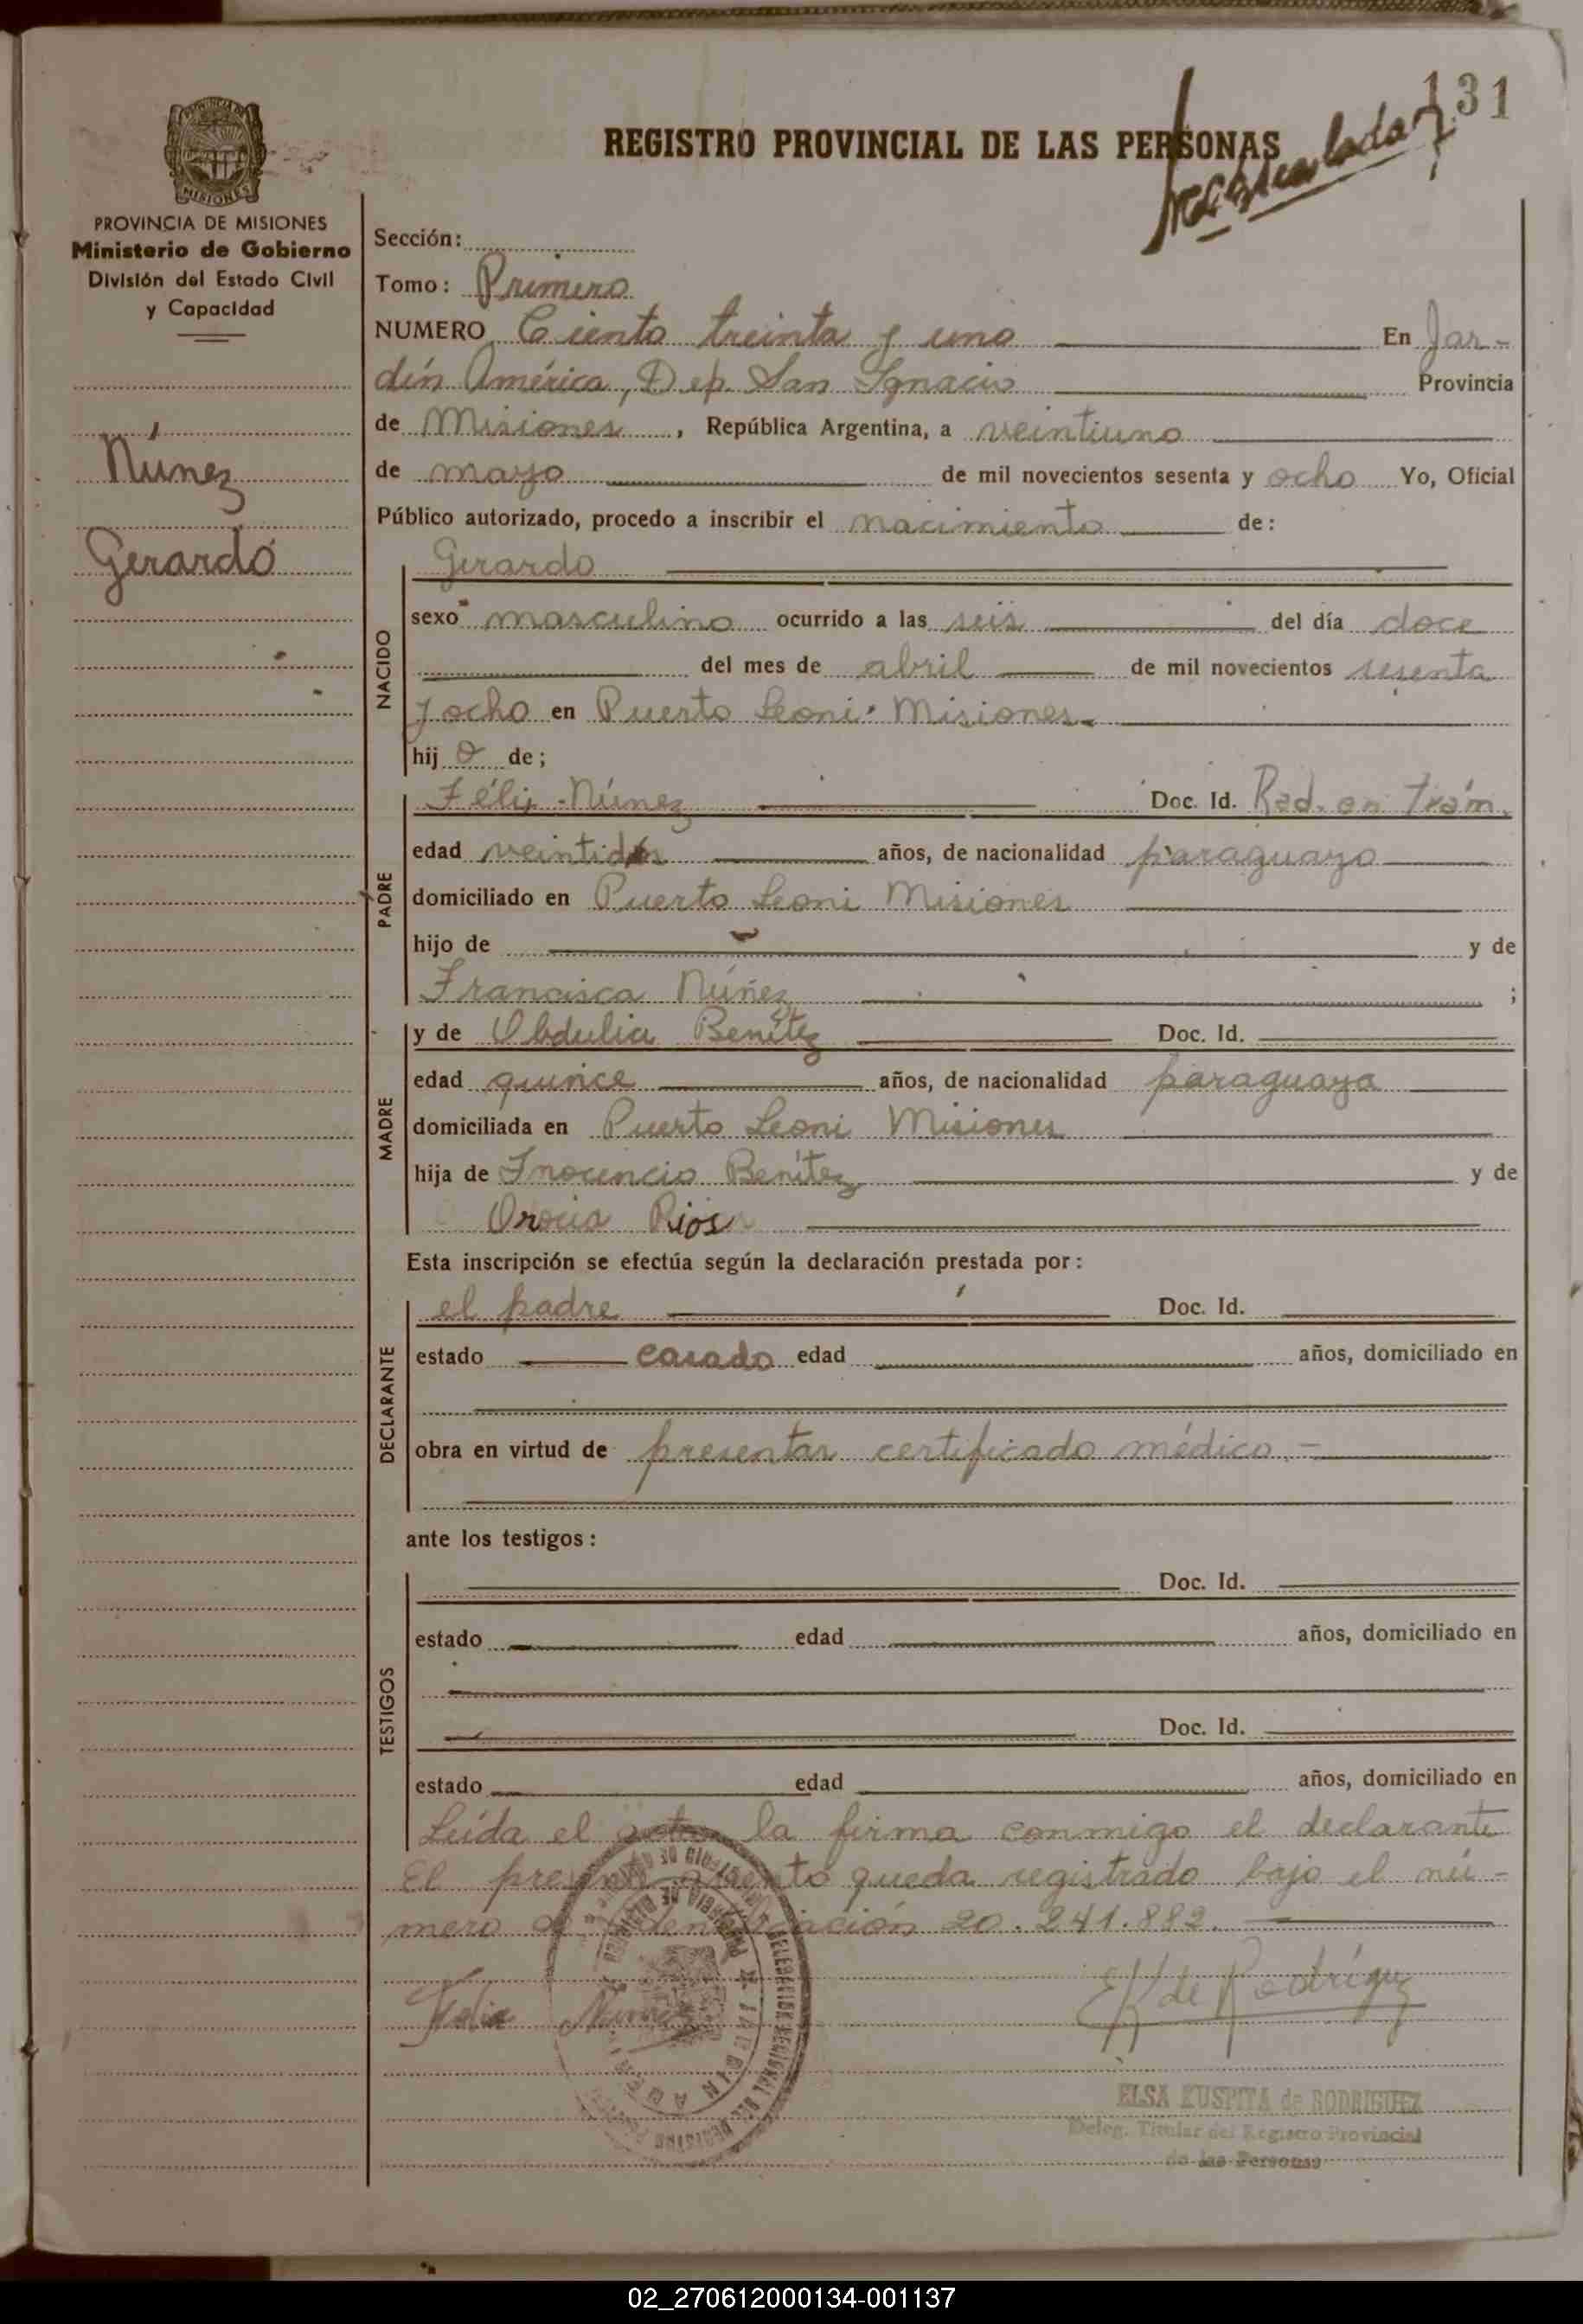 131
REGISTRO PROVINCIAL DE LAS PERSONAS
PROVINCIA DE MISIONES
MISIONES
PROVINCIA DE MISIONES
Ministerio de Gobierno
División del Estado Civil
y Capacidad
Núnez
Gerardo
Sección:
Tomo: Primero
NUMERO Ciento treinta y uno En Jar-
dín América, Dep. San Ignacio Provincia
de Misiones, República Argentina, a veintiuno
de mayo de mil novecientos sesenta y ocho Yo, Oficial
Público autorizado, procedo a inscribir el nacimiento de:
NACIDO
Gerardo
sexo masculino ocurrido a las seis del día doce
del mes de abril de mil novecientos sesenta
y ocho en Puerto Leoni - Misiones.
hij o de;
PADRE
Félix Núnez Doc. Id. Rad. en trám.
edad veintidós años, de nacionalidad paraguayo
domiciliado en Puerto Leoni Misiones
hijo de y de
Francisca Núñez ;
MADRE
y de Obdulia Benítez Doc. Id.
edad quince años, de nacionalidad paraguaya
domiciliada en Puerto Leoni Misiones
hija de Inocencio Benítez y de
Orocia Rios
Esta inscripción se efectúa según la declaración prestada por:
DECLARANTE
el padre Doc. Id.
estado casado edad años, domiciliado en
obra en virtud de presentar certificado médico.-
ante los testigos:
TESTIGOS
Doc. Id.
estado edad años, domiciliado en
Doc. Id.
estado edad años, domiciliado en
Leída el acta, la firma conmigo el declarante
El presente asiento queda registrado bajo el nú-
mero de identificación 20.241.882.
Felix Nunez
E K de Rodríguez
ELSA KUSPITA de RODRIGUEZ
Deleg. Titular del Registro Provincial
de las Personas
02_270612000134-001137